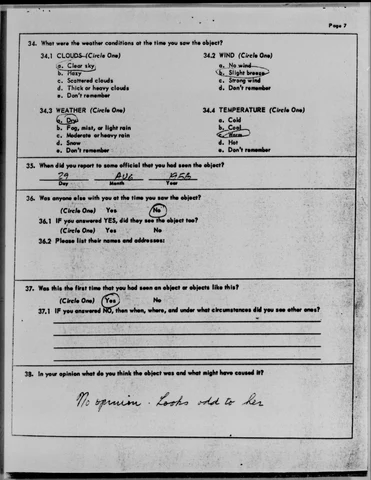 Page 7
34. What were the weather conditions at the time you saw the object?
34.1 CLOUDS (Circle One) 34.2 WIND (Circle One)
a. Clear sky a. No wind
b. Hazy b. Slight breeze
c. Scattered clouds c. Strong wind
d. Thick or heavy clouds d. Don't remember
e. Don't remember
34.3 WEATHER (Circle One) 34.4 TEMPERATURE (Circle One)
a. Dry a. Cold
b. Fog, mist, or light rain b. Cool
c. Moderate or heavy rain c. Warm
d. Snow d. Hot
e. Don't remember e. Don't remember
35. When did you report to some official that you had seen the object?
29 AUG
Day Month Year
36. Was anyone else with you at the time you saw the object?
(Circle One) Yes No
36.1 IF you answered YES, did they see the object too?
(Circle One) Yes No
36.2 Please list their names and addresses:
37. Was this the first time that you had seen an object or objects like this?
(Circle One) Yes No
37.1 IF you answered NO, then when, where, and under what circumstances did you see other ones?
38. In your opinion what do you think the object was and what might have caused it?
No opinion. Looks odd to her